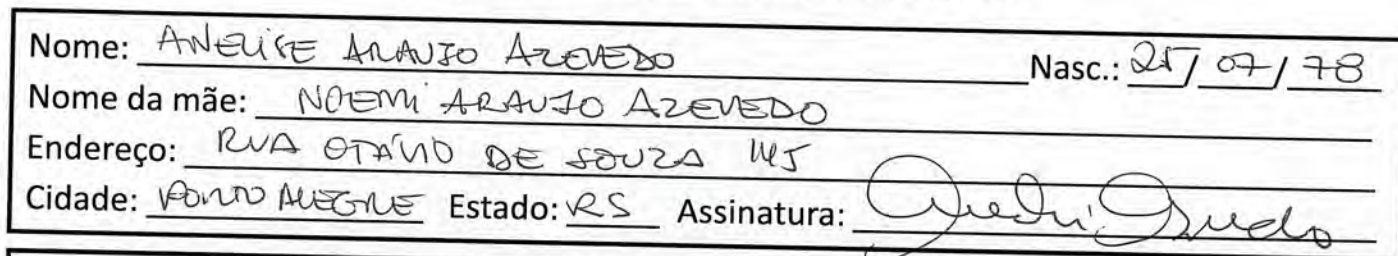 Nome: ANELISE ARAUJO AZEVEDO Nasc.: 25/07/78
Nome da mãe: NOEMI ARAUJO AZEVEDO
Endereço: RUA OTÁVIO DE SOUZA
Cidade: PORTO ALEGRE Estado: RS Assinatura: